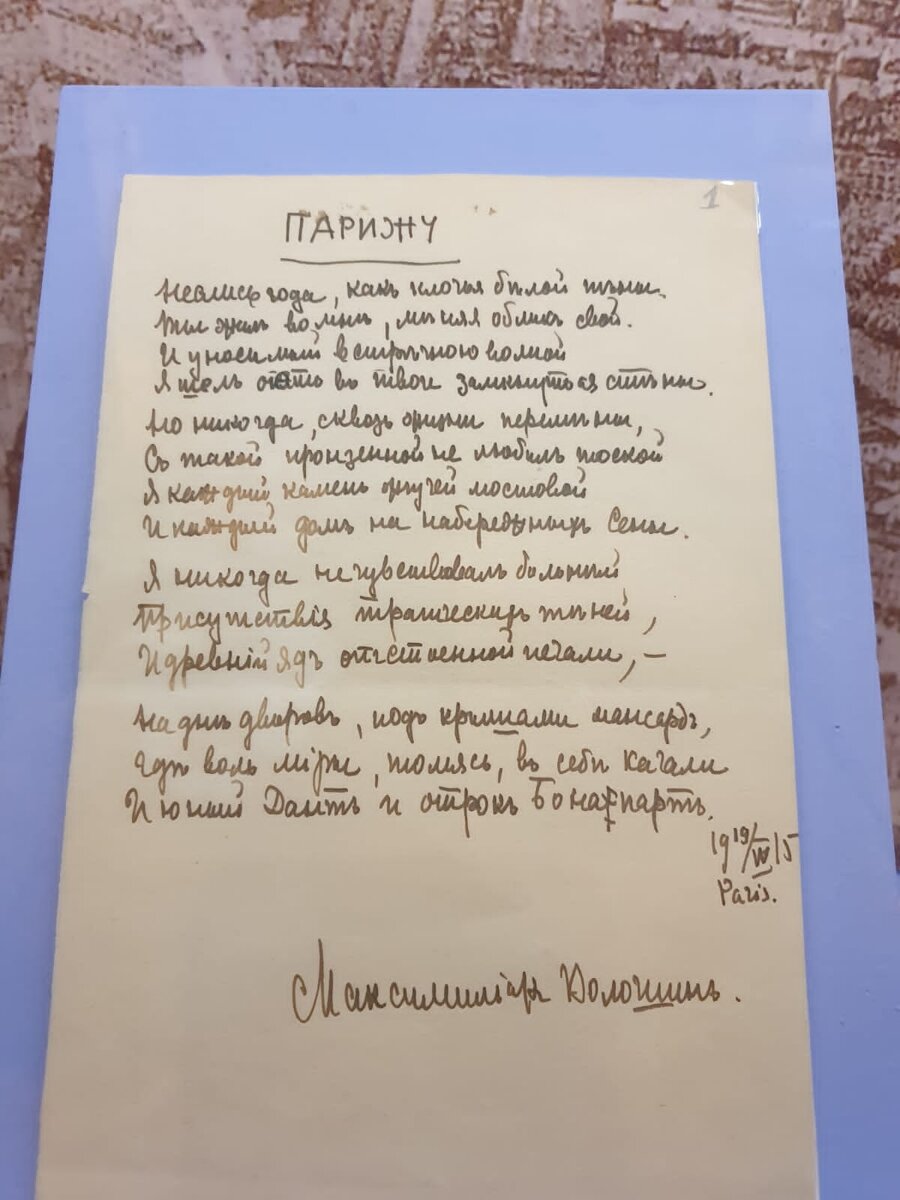 1
ПАРИЖУ
Неслись года, какъ клочья бѣлой пѣны.
Ты жилъ во мнѣ, мѣняя обликъ свой.
И уносимый встрѣчною волной
Я шелъ опять въ твои замкнуться стѣны.
Но никогда, сквозь жизни перемѣны,
Съ такой пронзенной не любилъ тоской
Я каждый камень жгучей мостовой
И каждый домъ на набережныхъ Сены.
Я никогда не чувствовалъ больнѣй
Присутствія трагическихъ тѣней,
И древній ядъ отстоенной печали, —
На днѣ дворовъ, подъ крышами мансардъ,
Гдѣ воль міры, томясь, въ себѣ качали
И юный Дантъ и отрокъ Бонапартъ.
19 19/IV 15
Paris.
Максимиліанъ Волошинъ.